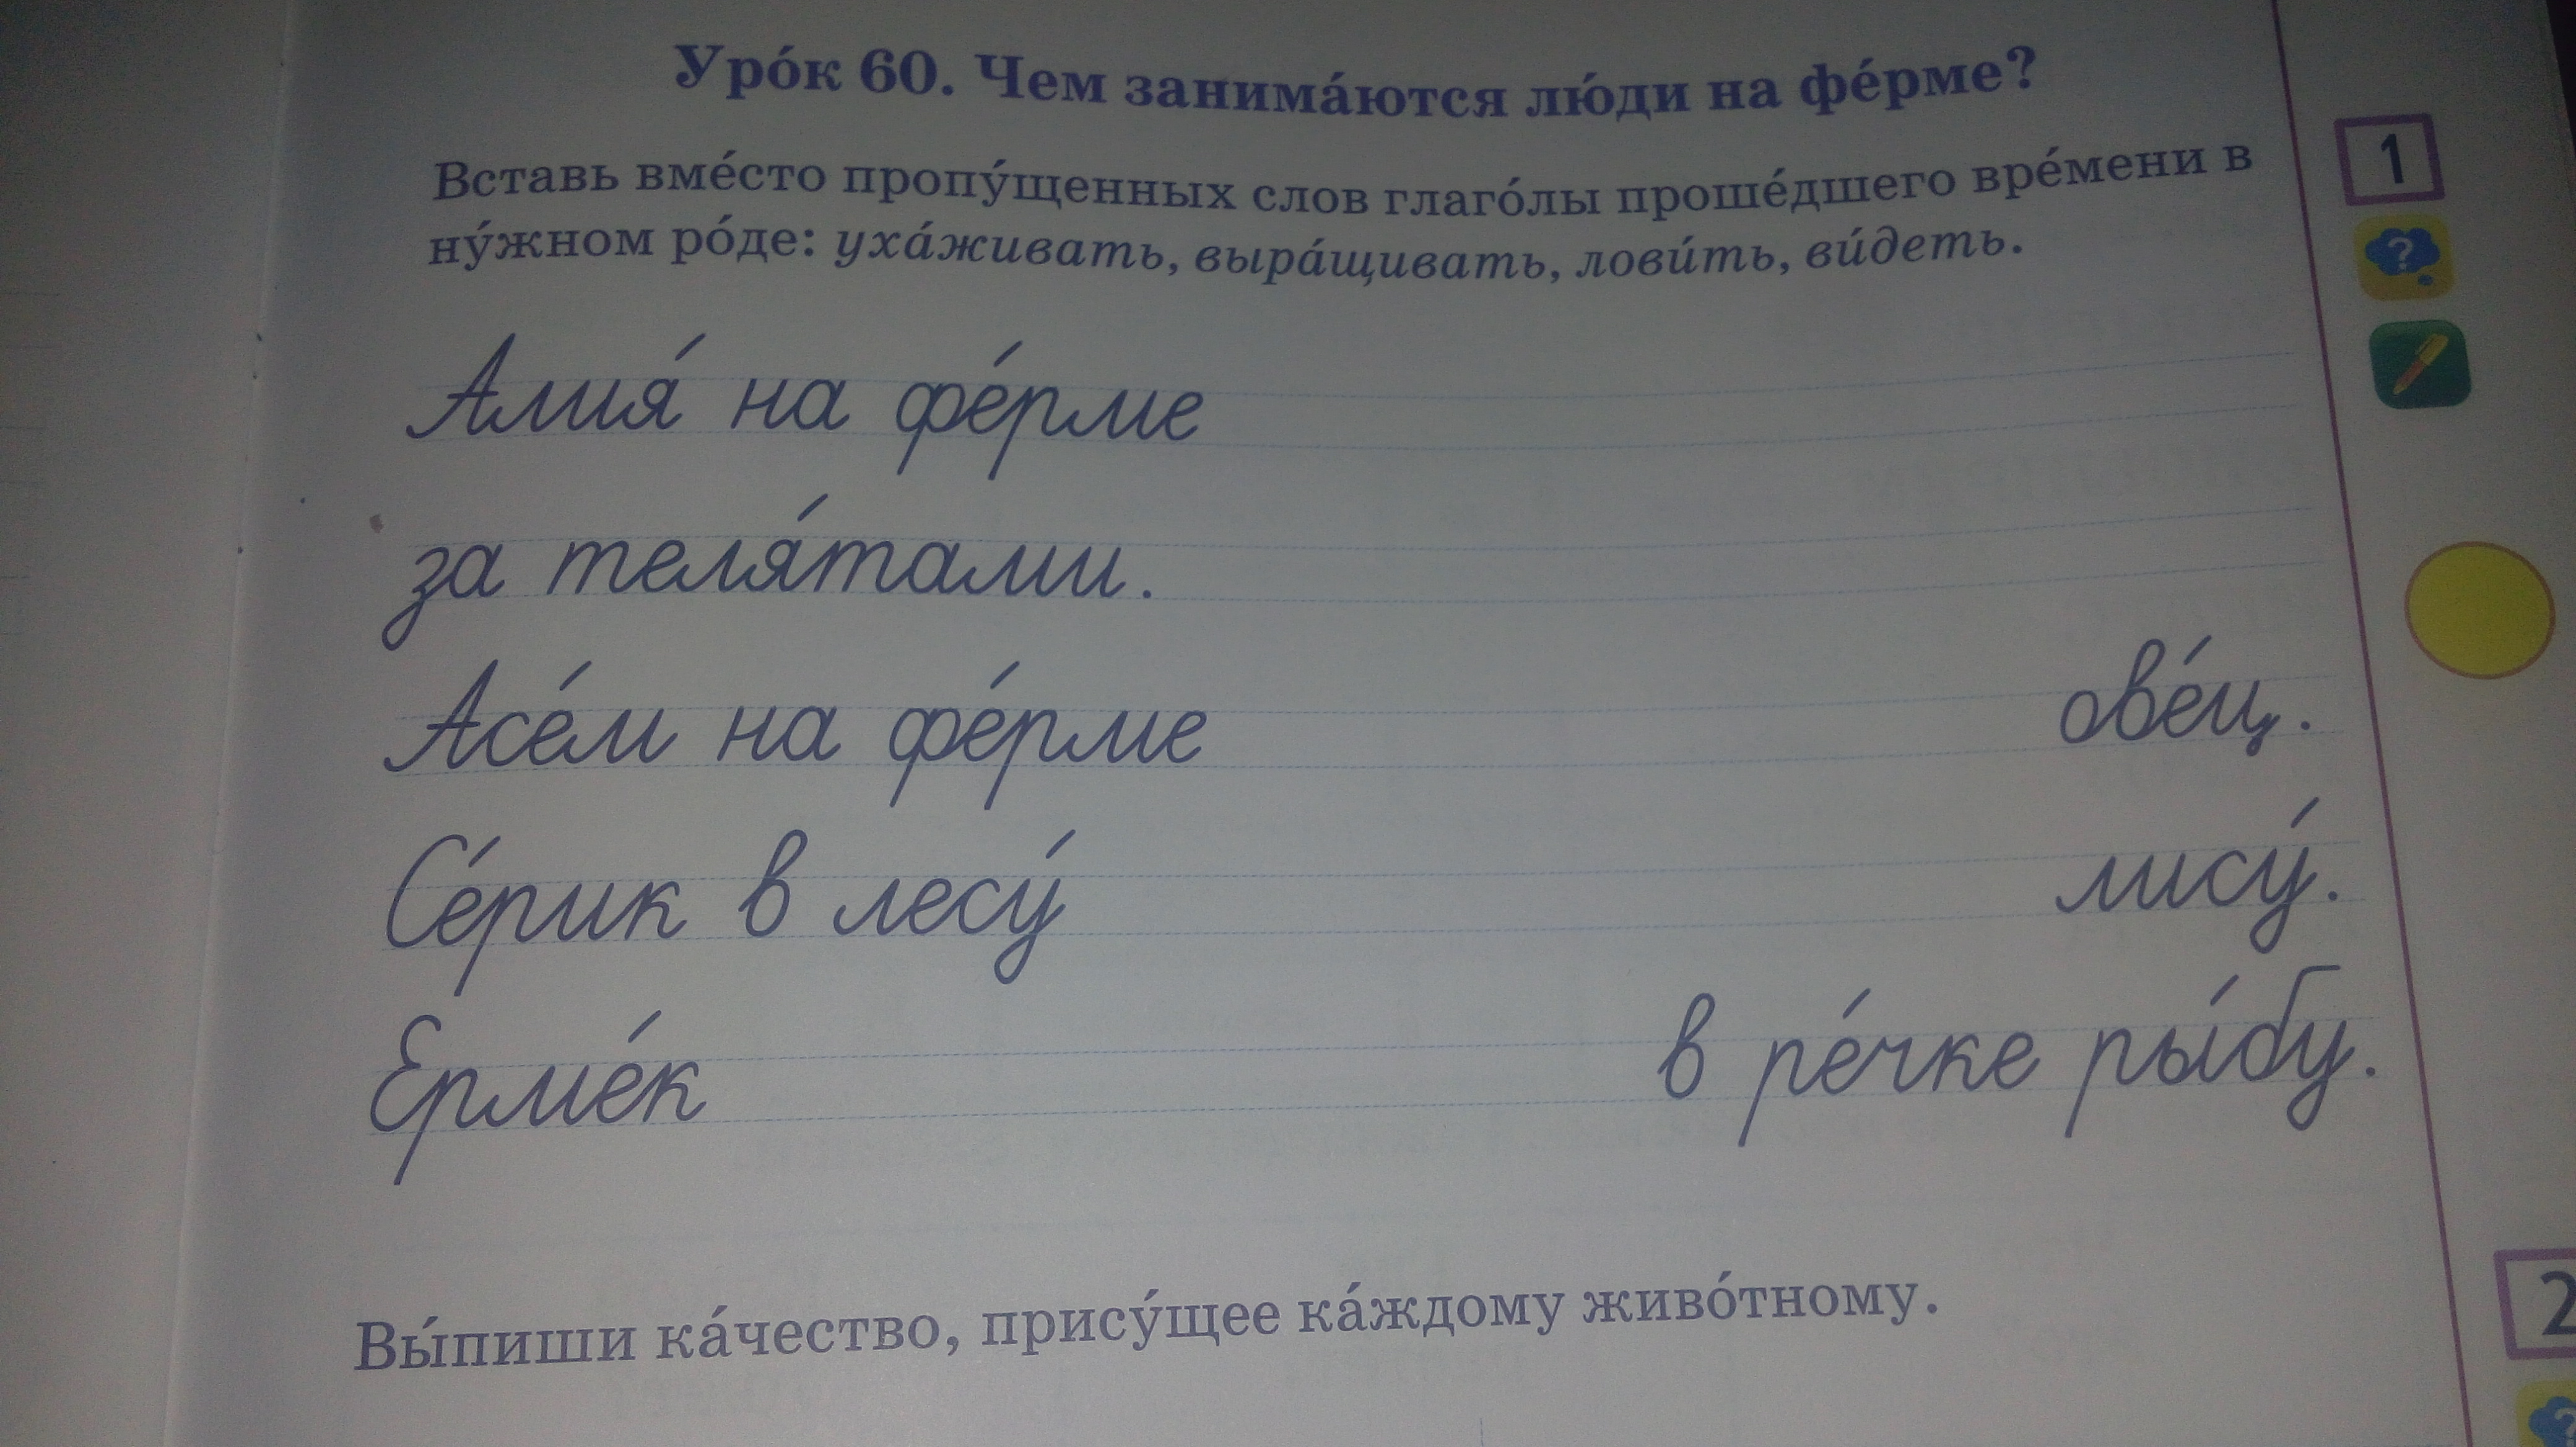 Уро́к 60. Чем занима́ются лю́ди на фе́рме?
1
Вставь вме́сто пропу́щенных слов глаго́лы проше́дшего вре́мени в
ну́жном ро́де: уха́живать, выра́щивать, лови́ть, ви́деть.
Алия́ на фе́рме
за теля́тами.
Асе́м на фе́рме ове́ц.
Се́рик в лесу́ лису́.
Ерме́к в ре́чке ры́бу.
2
Вы́пиши ка́чество, прису́щее ка́ждому живо́тному.